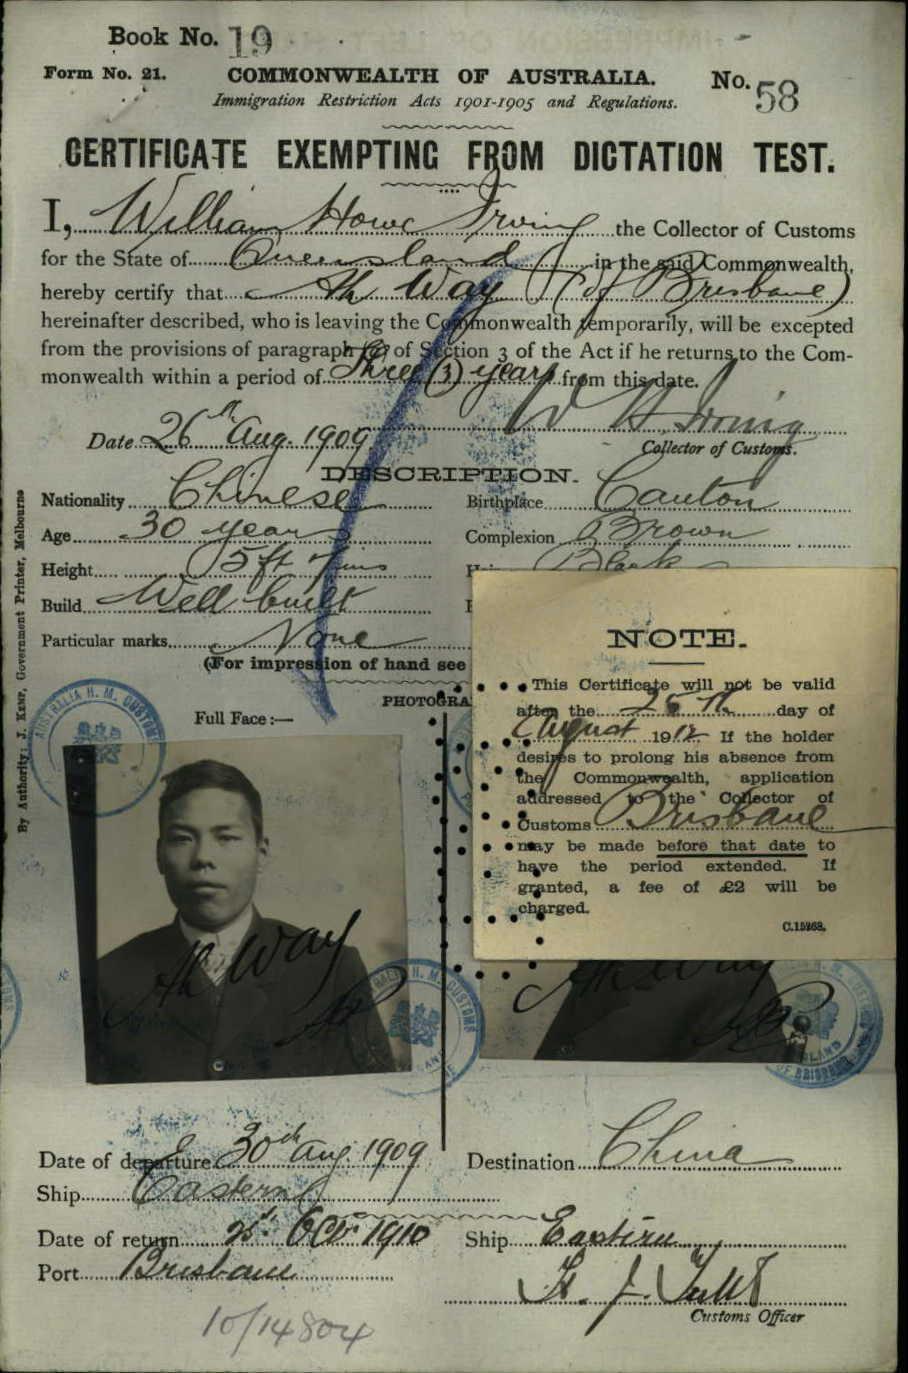 Book No. 19
Form No. 21. COMMONWEALTH OF AUSTRALIA. No. 58
Immigration Restriction Acts 1901-1905 and Regulations.
CERTIFICATE EXEMPTING FROM DICTATION TEST.
I, William Howe Irving the Collector of Customs
for the State of Queensland in the said Commonwealth,
hereby certify that Ah Way (of Brisbane)
hereinafter described, who is leaving the Commonwealth temporarily, will be excepted
from the provisions of paragraph of Section 3 of the Act if he returns to the Com-
monwealth within a period of Three (3) years from this date.
W H Irving
Date 26th Aug. 1909 Collector of Customs.
DESCRIPTION.
Nationality Chinese Birthplace Canton
Age 30 years Complexion Brown
Height 5 ft 7 ins Black
Build Well built
Particular marks None
(For impression of hand see
PHOTOGRA
Full Face:—
NOTE.
This Certificate will not be valid
after the 25th day of
August 1912 If the holder
desires to prolong his absence from
the Commonwealth, application
addressed to the Collector of
Customs Brisbane
may be made before that date to
have the period extended. If
granted, a fee of £2 will be
charged.
C.15268.
AUSTRALIA H. M. CUSTOMS
Ah Way
Ah Way
OF BRISBANE
Date of departure 30th Aug. 1909 Destination China
Ship Eastern
Date of return Oct 1910 Ship Eastern
Port Brisbane
Customs Officer
10/14804
By Authority: J. Kemp, Government Printer, Melbourne